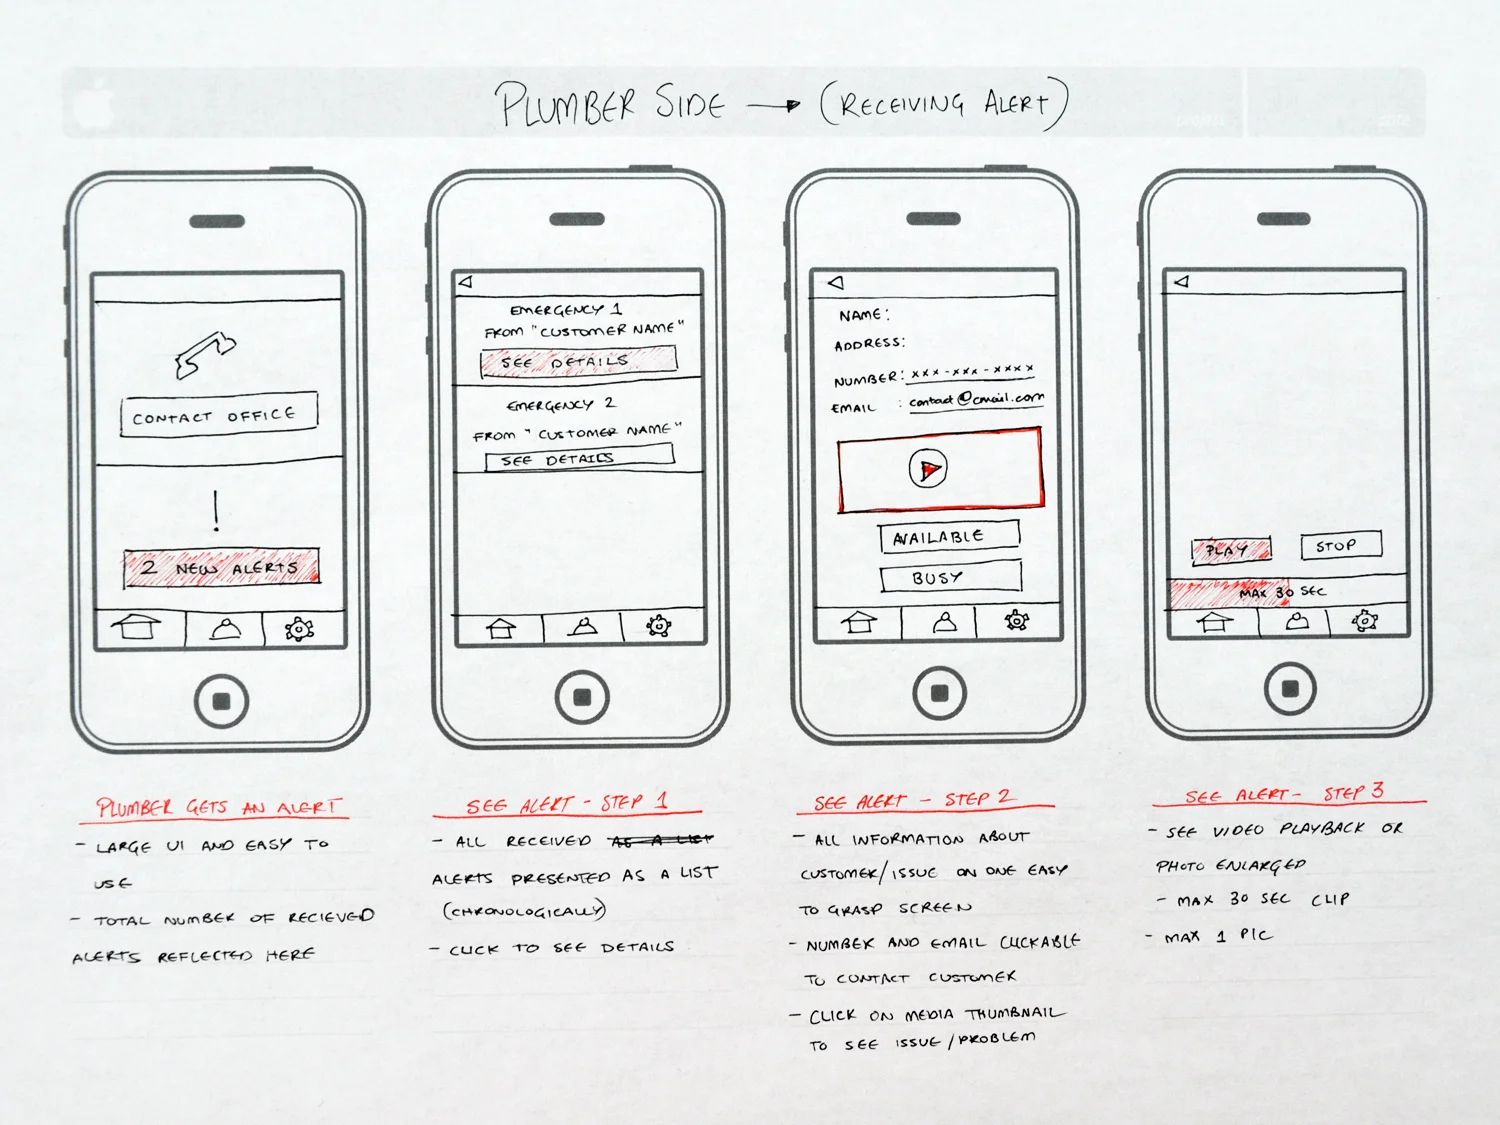 PLUMBER SIDE → (RECEIVING ALERT)
CONTACT OFFICE
!
2 NEW ALERTS
EMERGENCY 1
FROM "CUSTOMER NAME"
SEE DETAILS
EMERGENCY 2
FROM "CUSTOMER NAME"
SEE DETAILS
NAME:
ADDRESS:
NUMBER: xxx-xxx-xxxx
EMAIL : contact@cmail.com
AVAILABLE
BUSY
PLAY
STOP
MAX 30 SEC
PLUMBER GETS AN ALERT
- LARGE UI AND EASY TO
USE
- TOTAL NUMBER OF RECIEVED
ALERTS REFLECTED HERE
SEE ALERT - STEP 1
- ALL RECEIVED AS A LIST
ALERTS PRESENTED AS A LIST
(CHRONOLOGICALLY)
- CLICK TO SEE DETAILS
SEE ALERT - STEP 2
- ALL INFORMATION ABOUT
CUSTOMER/ISSUE ON ONE EASY
TO GRASP SCREEN
- NUMBER AND EMAIL CLICKABLE
TO CONTACT CUSTOMER
- CLICK ON MEDIA THUMBNAIL
TO SEE ISSUE/PROBLEM
SEE ALERT - STEP 3
- SEE VIDEO PLAYBACK OR
PHOTO ENLARGED
- MAX 30 SEC CLIP
- MAX 1 PIC